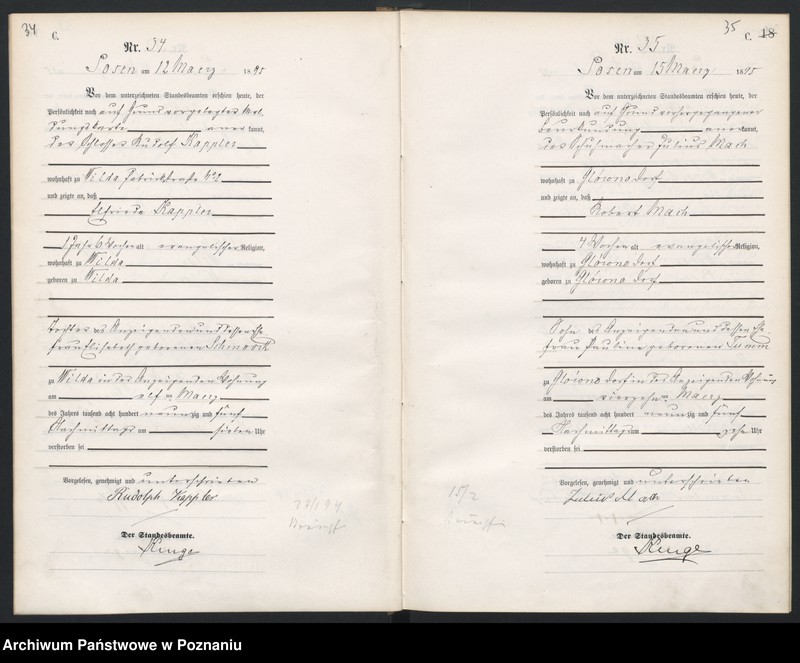 34
C.
Nr. 34
Posen am 12 Maerz 1895
Vor dem unterzeichneten Standesbeamten erschien heute, der
Persönlichkeit nach auf Grund vorgelegter Mel
dungskarte anerkannt,
der Schlosser Rudolf Kappler
wohnhaft zu Wilda
und zeigte an, daß
Elfriede Kappler
1 Jahr 6 Wochen alt evangelischer Religion,
wohnhaft zu Wilda
geboren zu Wilda
Tochter des Anzeigenden und dessen Ehe
frau Elisabeth geborenen
zu Wilda in des Anzeigenden Wohnung
am elf ten Maerz
des Jahres tausend acht hundert neunzig und fünf
Nachmittags um sieben Uhr
verstorben sei
Vorgelesen, genehmigt und unterschrieben
Rudolph Kappler
Der Standesbeamte.
35
C. 18
Nr. 35
Posen am 15 Maerz 1895
Vor dem unterzeichneten Standesbeamten erschien heute, der
Persönlichkeit nach auf Grund vorhergegangener
Beurkundung anerkannt,
der Schuhmacher Julius Mach
wohnhaft zu Glówno Dorf
und zeigte an, daß
Robert Mach
7 Wochen alt evangelischer Religion,
wohnhaft zu Glówno Dorf
geboren zu Glówno Dorf
Sohn des Anzeigenden und dessen Ehe
frau Pauline geborenen Timm
zu Glówno Dorf in des Anzeigenden Wohnung
am vierzehn ten Maerz
des Jahres tausend acht hundert neunzig und fünf
Nachmittags um zehn Uhr
verstorben sei
Vorgelesen, genehmigt und unterschrieben
Julius Mach
Der Standesbeamte.
Archiwum Państwowe w Poznaniu